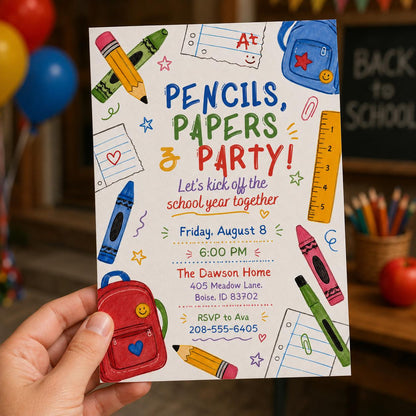 A+
PENCILS,
PAPERS
& PARTY!
Let's kick off the
school year together
Friday, August 8
6:00 PM
The Dawson Home
405 Meadow Lane,
Boise, ID 83702
RSVP to Ava
208-555-6405
1
2
3
4
5
BACK
to
SCHOOL